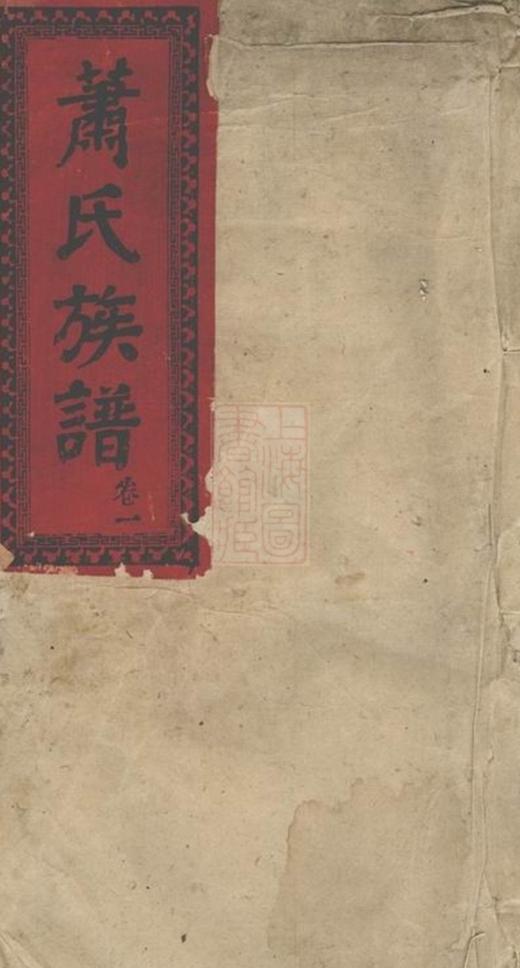 蕭氏族譜
卷一
上海圖
書館藏